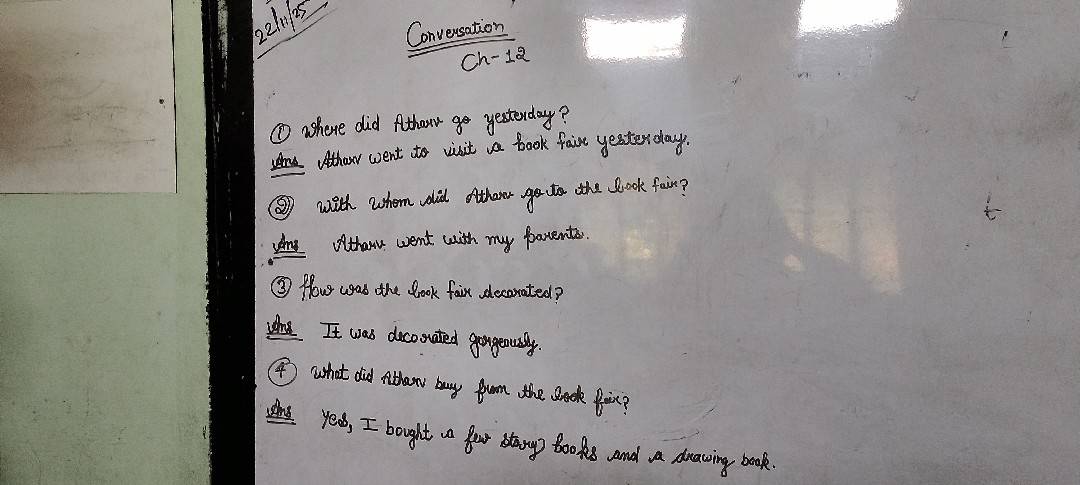 22/11/25
Conversation
Ch-12
① Where did Atharv go yesterday?
Ans Atharv went to visit a book fair yesterday.
② With whom did Atharv go to the book fair?
Ans Atharv went with my parents.
③ How was the book fair decorated?
Ans It was decorated gorgeously.
④ What did Atharv buy from the book fair?
Ans Yes, I bought a few story books and a drawing book.
t